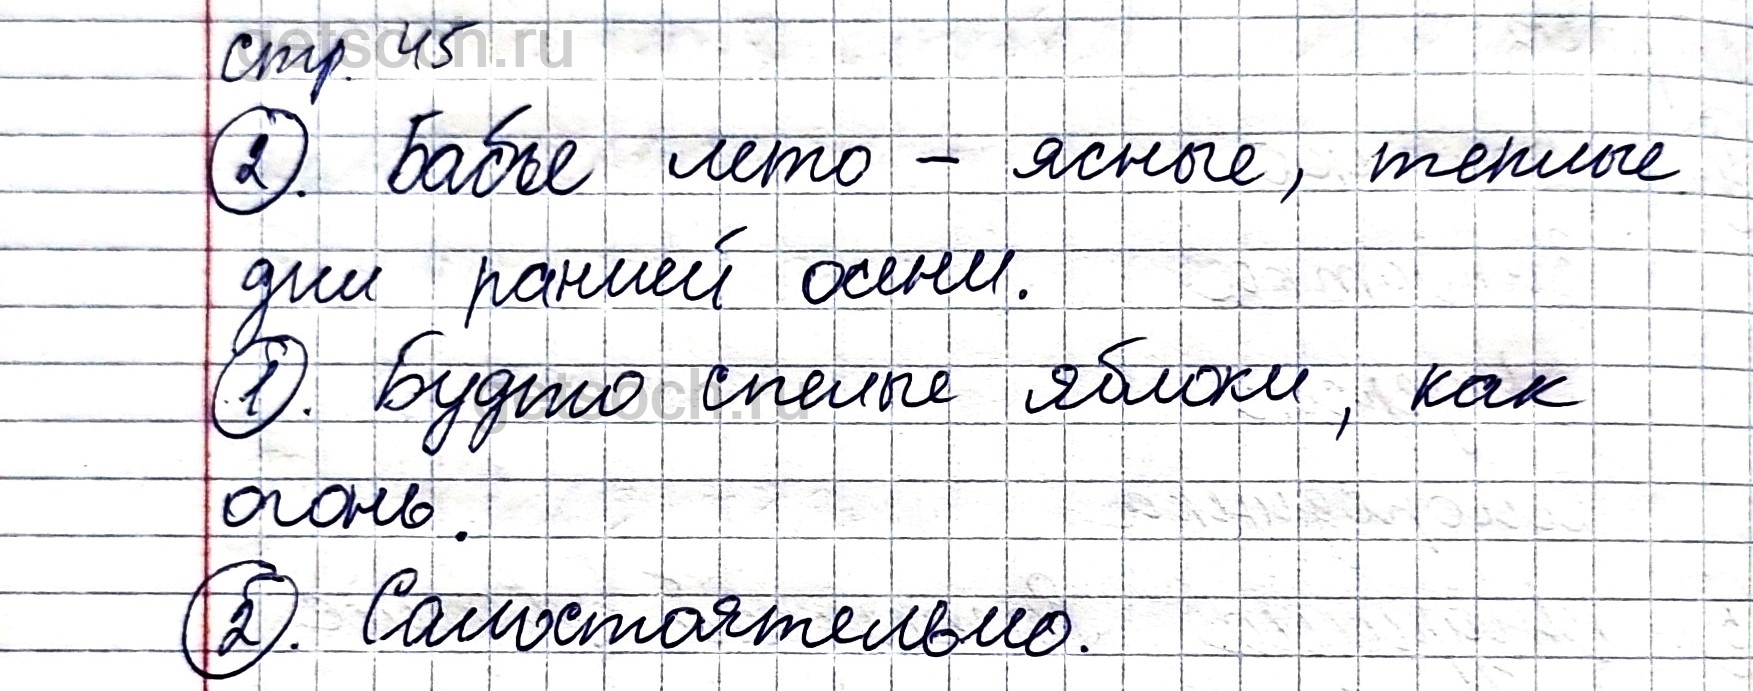 getsoch.ru
стр. 45
2. Бабье лето – ясные, теплые
дни ранней осени.
getsoch.ru
1. Будто спелые яблоки, как
огонь.
2. Самостоятельно.